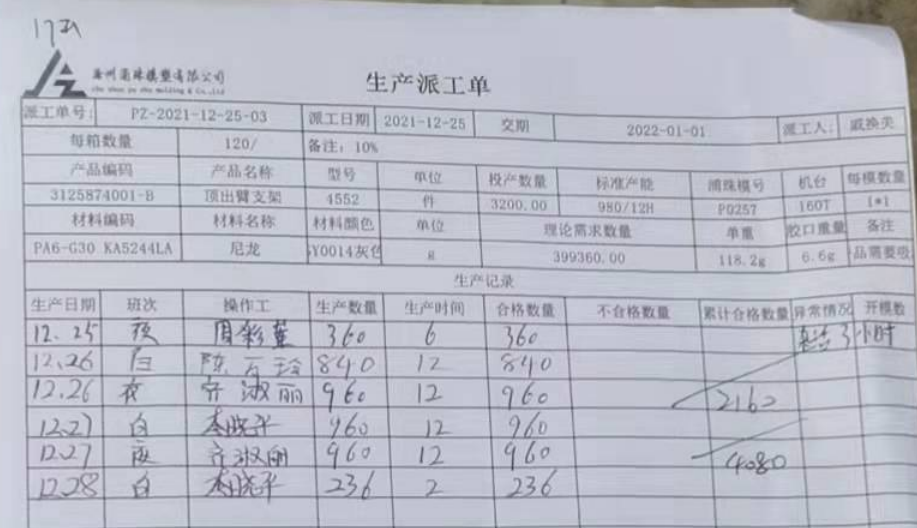 生产派工单
派工单号: PZ-2021-12-25-03 派工日期 2021-12-25 交期 2022-01-01 派工人: 戚换美
每箱数量 120/ 备注: 10%
产品编码 产品名称 型号 单位 投产数量 标准产能 浦珠模号 机台 每模数量
3125874001-B 顶出臂支架 4552 件 3200.00 980/12H P0257 160T 1*1
材料编码 材料名称 材料颜色 单位 理论需求数量 单重 胶口重量 备注
PA6-G30 KA5244LA 尼龙 Y0014灰色 g 399360.00 118.2g 6.6g 品需要吸
生产记录
生产日期 班次 操作工 生产数量 生产时间 合格数量 不合格数量 累计合格数量 异常情况 开模数
12.25 夜 360 6 360 3小时
12.26 白 陈百玲 840 12 840
12.26 夜 齐淑丽 960 12 960 2160
12.27 白 李晓平 960 12 960
12.27 夜 齐淑丽 960 12 960 4080
12.28 白 李晓平 236 2 236